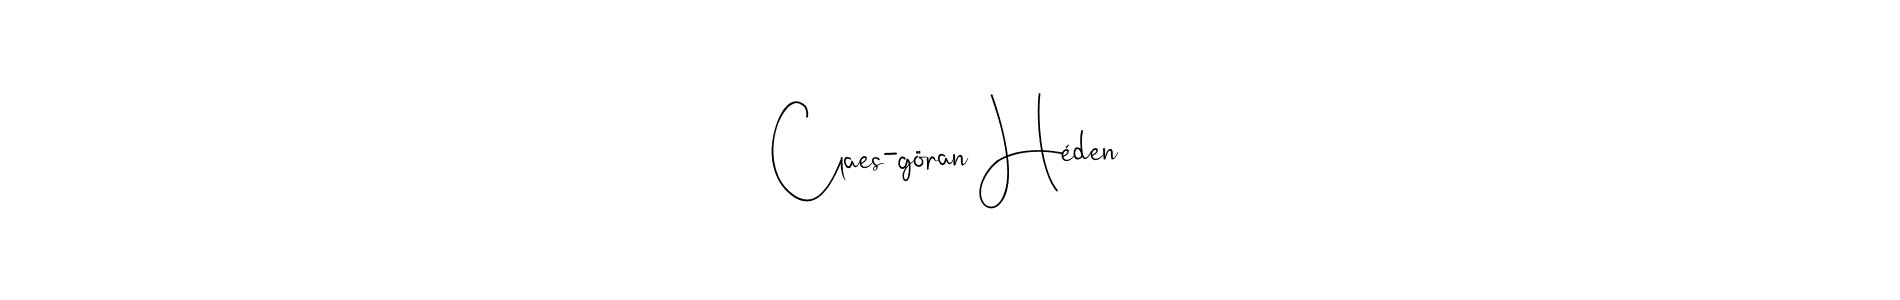 Claes-göran Héden